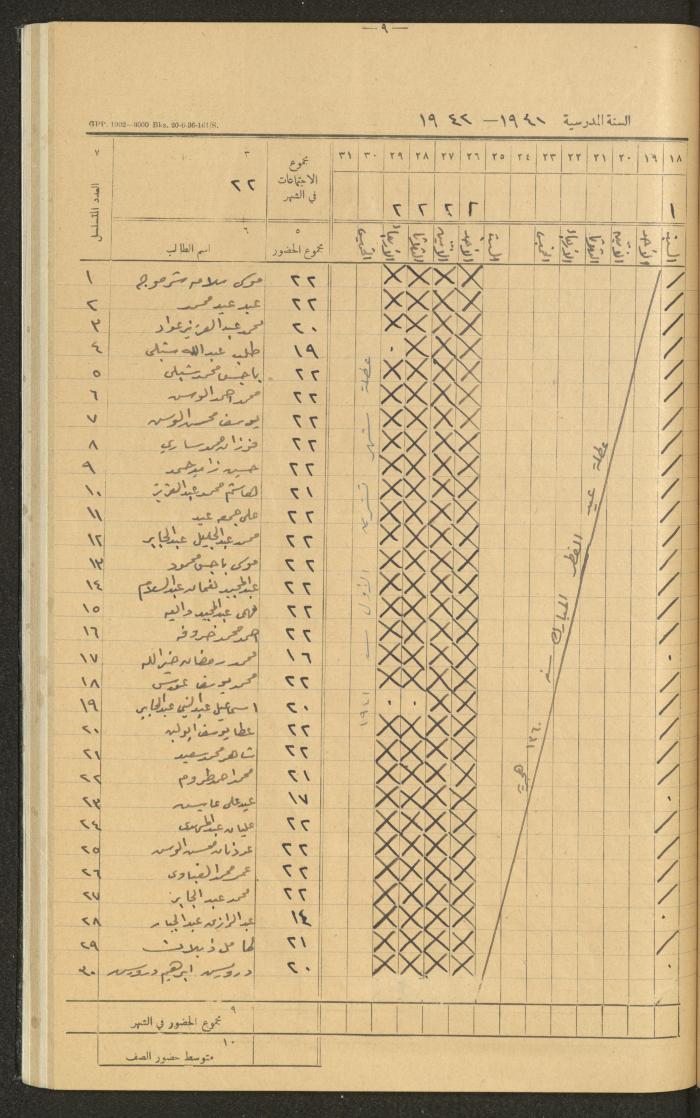 — ٩ —
السنة المدرسية ١٩٤١ — ١٩٤٢
GPP. 1002—3000 Bks. 20-6-36-161/S.
١٨ ١٩ ٢٠ ٢١ ٢٢ ٢٣ ٢٤ ٢٥ ٢٦ ٢٧ ٢٨ ٢٩ ٣٠ ٣١ مجموع الاجتماعات في الشهر ٣ ٧
١ ٢ ٢ ٢ ٢ ٢٢ العدد المتسلسل
السبت الأحد الاثنين الثلاثا الأربعاء الخميس السبت الأحد الاثنين الثلاثا الأربعاء الخميس
٥ مجموع الحضور ٦ اسم الطالب
٢٢ موسى سلامه ١
٢٢ عبد عيد محمد ٢
٢٠ محمد عبد العزيز عواد ٣
١٩ طلب عبدالله شبلي ٤
٢٢ باجس محمد شبلي ٥
٢٢ محمد احمد الوسن ٦
٢٢ يوسف محسن الوسن ٧
٢٢ فوزان محمد ساري ٨
٢٢ حسين زامر حمد ٩
٢١ هاشم محمد عبد العزيز ١٠
٢٢ علي جمعه عيد ١١
٢٢ محمد عبد الجليل عبد الجابر ١٢
٢٢ موسى باجس محمود ١٣
٢٢ عبد المجيد نعمان عبد السلام ١٤
٢٢ فهمي عبد المجيد ١٥
٢٢ احمد محمد خروفه ١٦
١٦ محمد رمضان خير الله ١٧
٢٢ محمد يوسف ١٨
٢٠ اسماعيل عبد النبي عبد الجابر ١٩
٢٢ عطا يوسف ٢٠
٢٢ شاهر محمد سعيد ٢١
٢١ محمد احمد طروم ٢٢
١٧ عيد علي ٢٣
٢٢ عليان عبد المهدي ٢٤
٢٢ عدنان محسن الوسن ٢٥
٢٢ عمر محمد القباوي ٢٦
٢٢ محمد عبد الجابر ٢٧
١٤ عبد الرازق عبد الجبار ٢٨
٢١ كامل ذيبلات ٢٩
٢٠ درويش ابراهيم درويش ٣٠
عطلة عيد الفطر المبارك سنة ١٣٦٠ هجرية
عطلة شهر تشرين الأول سنة ١٩٤١
٩ مجموع الحضور في الشهر
١٠ متوسط حضور الصف